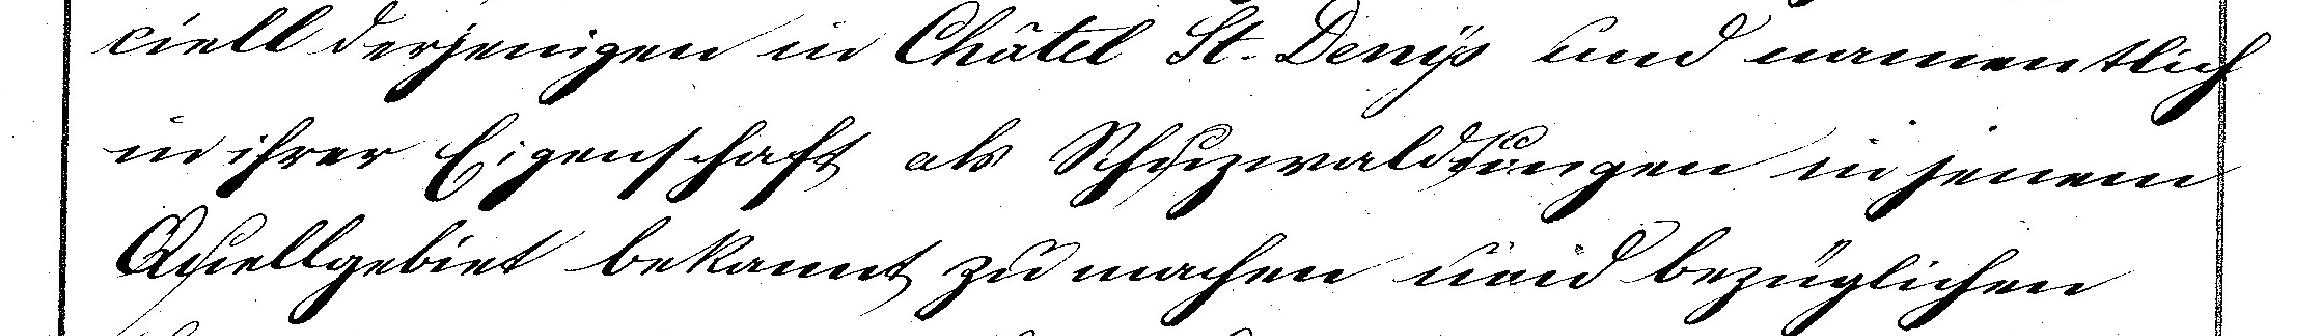 ciell derjenigen in Châtel St. Denys und namentlich
in ihrer Eigenschaft als Schuzwaldungen in jenem
Quellgebiet bekannt zu machen und bezüglichen